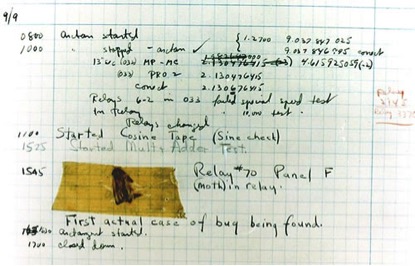 9/9
0800 antan started
1000 " stopped - antan ✓ { 1.2700 9.037 847 025
9.037 846 995 conect
13"uc (033) MP-MC 2.130476415 (-3) 4.615925059(-2)
(033) PRO 2 2.130476415
conect 2.130676415
Relays 6-2 in 033 failed special speed test
In Relay " 10.000 test.
Relays changed
Relay
3145
Relay 3370
1100 Started Cosine Tape (Sine check)
1525 Started Mult+ Adder Test.
1545 Relay #70 Panel F
(Moth) in relay.
First actual case of bug being found.
1630 antangent started.
1700 closed down.